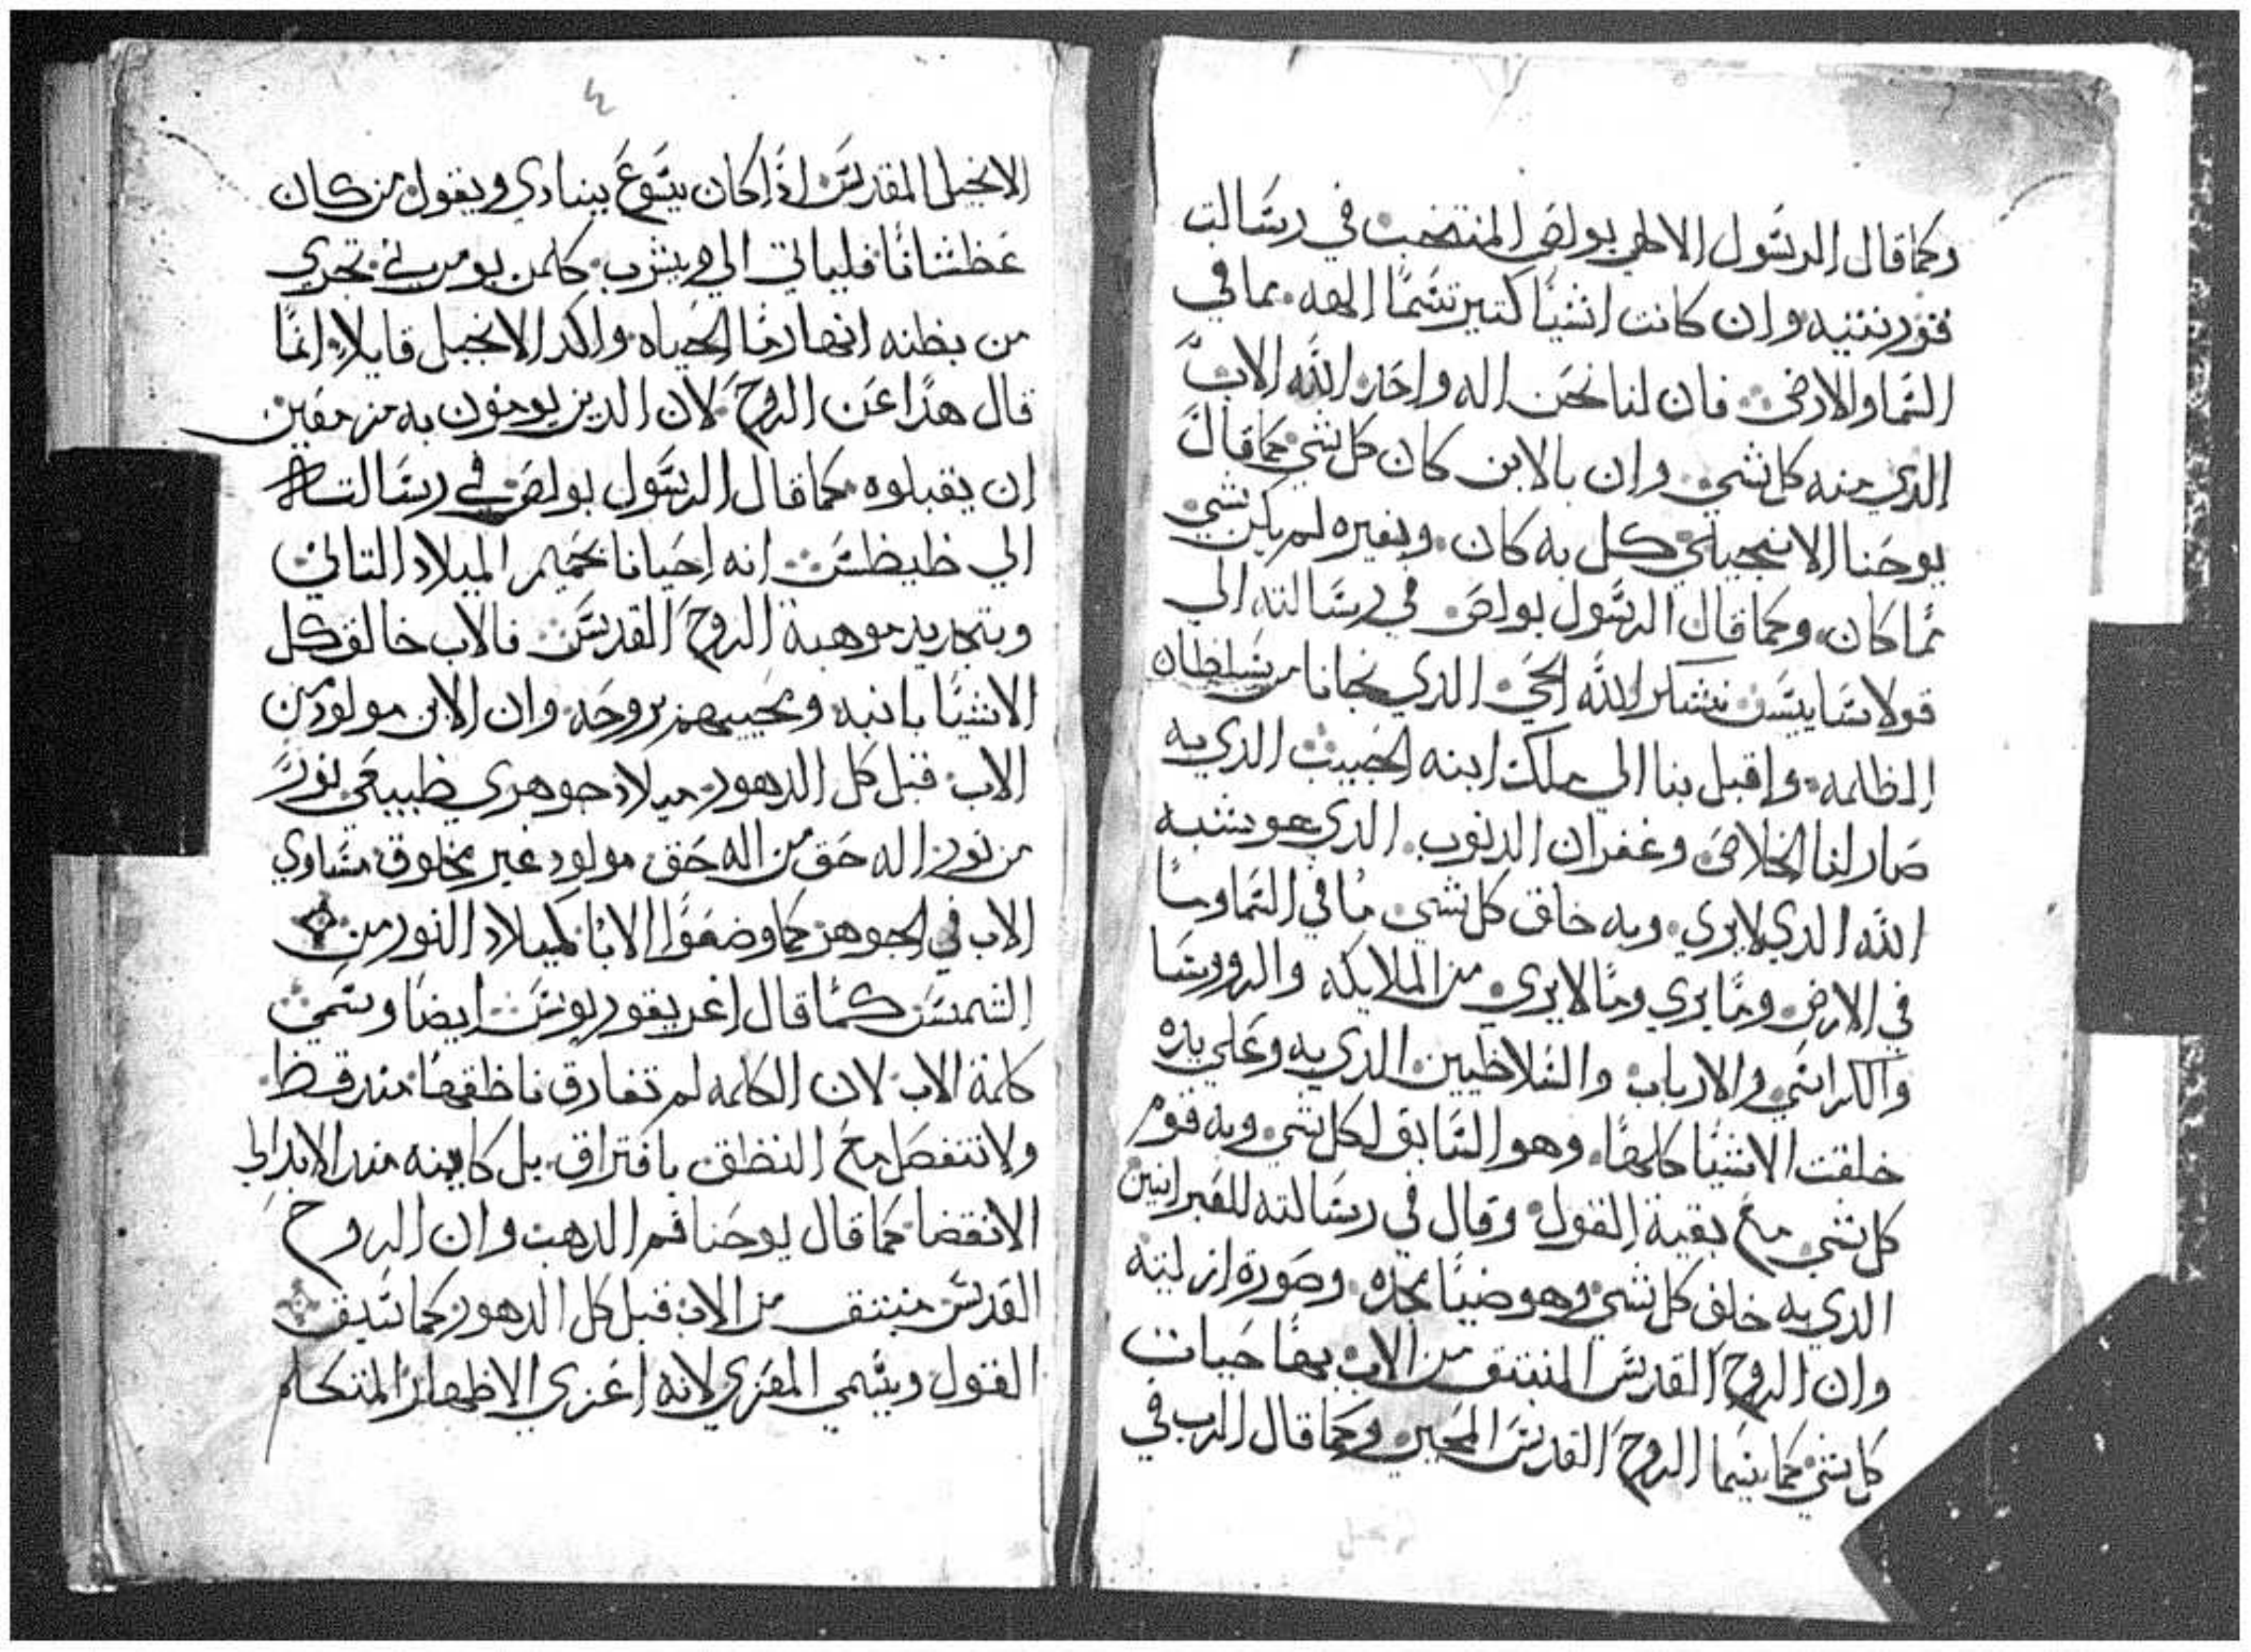 وكما قال الرسول الالهي بولص المنتخب في رسالت
قورنتيه وان كانت اشيا كتير تسما الهه مما في
السما والارض فان لنا نحن اله واحد الله الاب
الدي منه كل شي وان بالابن كان كل شي كما قال
يوحنا الانجيلي كل به كان وبغيره لم يكن شي
مما كان وكما قال الرسول بولص في رسالته الي
قولاسايس نشكر الله الحي الدي نجانا من سلطان
الظلمه واقبل بنا الي ملك ابنه الحبيب الدي به
صار لنا الخلاص وغفران الدنوب الدي هو شبه
الله الدي لايري وبه خلق كل شي ما في السما وما
في الارض وما يري وما لايري من الملايكه والروسا
والكراسي والارباب والسلاطين الدي به وعلي يده
خلقت الاشيا كلها وهو السابق لكل شي وبه قوم
كل شي مع بقية القول وقال في رسالته للعبرانيين
الدي به خلق كل شي وهو ضيا مجده وصورة ازليته
وان الروح القدس المنبتق من الاب بها حيات
كل شي كما يسما الروح القدس المحيي وكما قال الرب في
٤
الانجيل المقدس اذا كان يسوع ينادي ويقول من كان
عطشانا فلياتي الي ويشرب كلمن يومن بي تجري
من بطنه انهار ما الحياه واكد الانجيل قايلا انما
قال هذا عن الروح لان الدين يومنون به مزمعين
ان يقبلوه كما قال الرسول بولص في رسالته
الي طيطس انه احيانا بحميم الميلاد التاني
وبتجديد موهبة الروح القدس فالاب خالق كل
الاشيا بابنه ومحييهم بروحه وان الابن مولود من
الاب قبل كل الدهور ميلاد جوهري طبيعي نور
من نور اله حق من اله حق مولود غير مخلوق مساوي
الاب في الجوهر كما وضعوا الابا كميلاد النور من
الشمس كما قال اغريغوريوس ايضا وسمي
كلمة الاب لان الكلمه لم تفارق ناطقها مند قط
ولا تنفصل مع النطق بافتراق بل كاينه مند الابد الي
الانقضا كما قال يوحنا فم الدهب وان الروح
القدس منبتق من الاب قبل كل الدهور كما سبق
القول ويسمي المعزي لانه اعزي الاطهار المتكلم